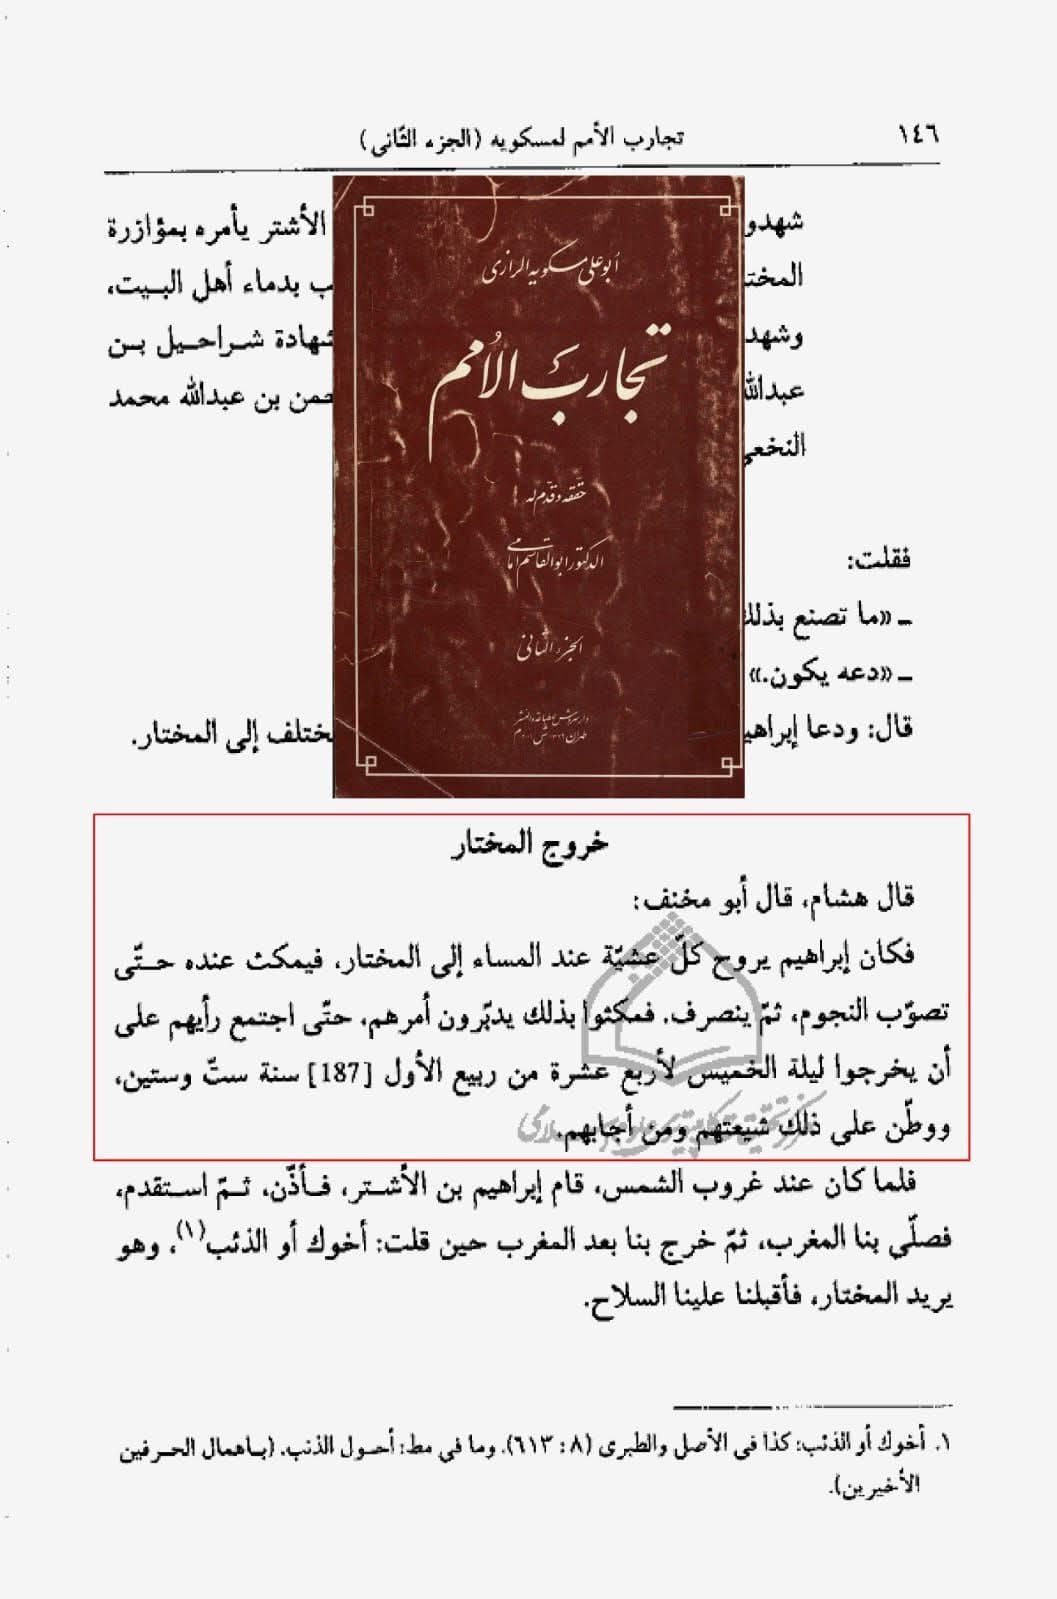 ١٤٦
تجارب الأمم لمسكويه (الجزء الثّاني)
شهدو
الأشتر يأمره بمؤازرة
المختا
ب بدماء أهل البـيت،
وشهد
شهادة شـراحـيل بـن
عبدالله
حمن بن عبدالله محمد
النخعي
أبو علي مسكويه الرازي
تجارب الأُمم
حققه وقدّم له
الدكتور ابوالقاسم امامي
الجزء الثاني
فقلت:
ـ «ما تصنع بذلك
ـ «دعه يكون.»
قال: ودعا إبراهيـ
يختلف إلى المختار.
خروج المختار
قال هشام، قال أبو مخنف:
فكان إبراهيم يروح كلّ عشيّة عند المساء إلى المختار، فيمكث عنده حـتّى
تصوّب النجوم، ثمّ ينصرف. فمكثوا بذلك يدبّرون أمرهم، حتّى اجتمع رأيهم على
أن يخرجوا ليلة الخميس لأربع عشرة من ربيع الأول [187] سنة ستّ وستين،
ووطّن على ذلك شيعتهم ومن أجابهم.
فلما كان عند غروب الشمس، قام إبراهيم بن الأشـتر، فـأذّن، ثـمّ اسـتقدم،
فصلّي بنا المغرب، ثمّ خرج بنا بعد المغرب حين قلت: أخوك أو الذئب(١)، وهو
يريد المختار، فأقبلنا علينا السلاح.
١. أخوك أو الذئب: كذا في الأصل والطبري (٨: ٦١٣). وما في مط: أحـول الذنب. (بـاهمال الحـرفين
الأخيرين).